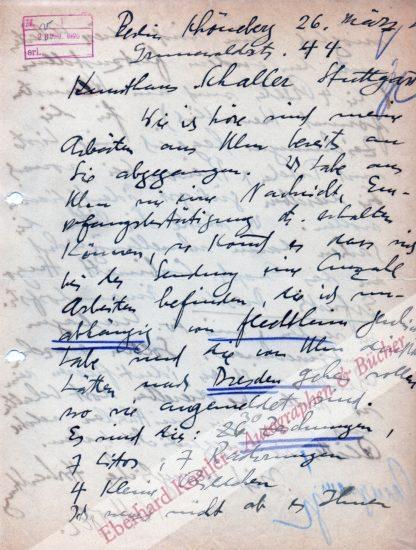 Berlin Schöneberg 26. März
Grunewaldstr. 44
Kunsthaus Schaller Stuttgart
Wie ich höre sind meine
Arbeiten aus Ulm bereits an
Sie abgegangen. Ich habe aus
Ulm nie eine Nachricht, Em-
pfangsbestätigung etc. erhalten
können, so kommt es dass sich
bei der Sendung eine Anzahl
Arbeiten befinden, die ich un-
abhängig von
habe und die von Ulm
hätten nach Dresden gehen sollen
wo sie angemeldet sind.
Es sind die: 26 Zeichnungen,
7 Litos, 7 Radierungen
4 kleine
Ich weiss nicht ob es Ihnen
Eberhard Köstler Autographen & Bücher